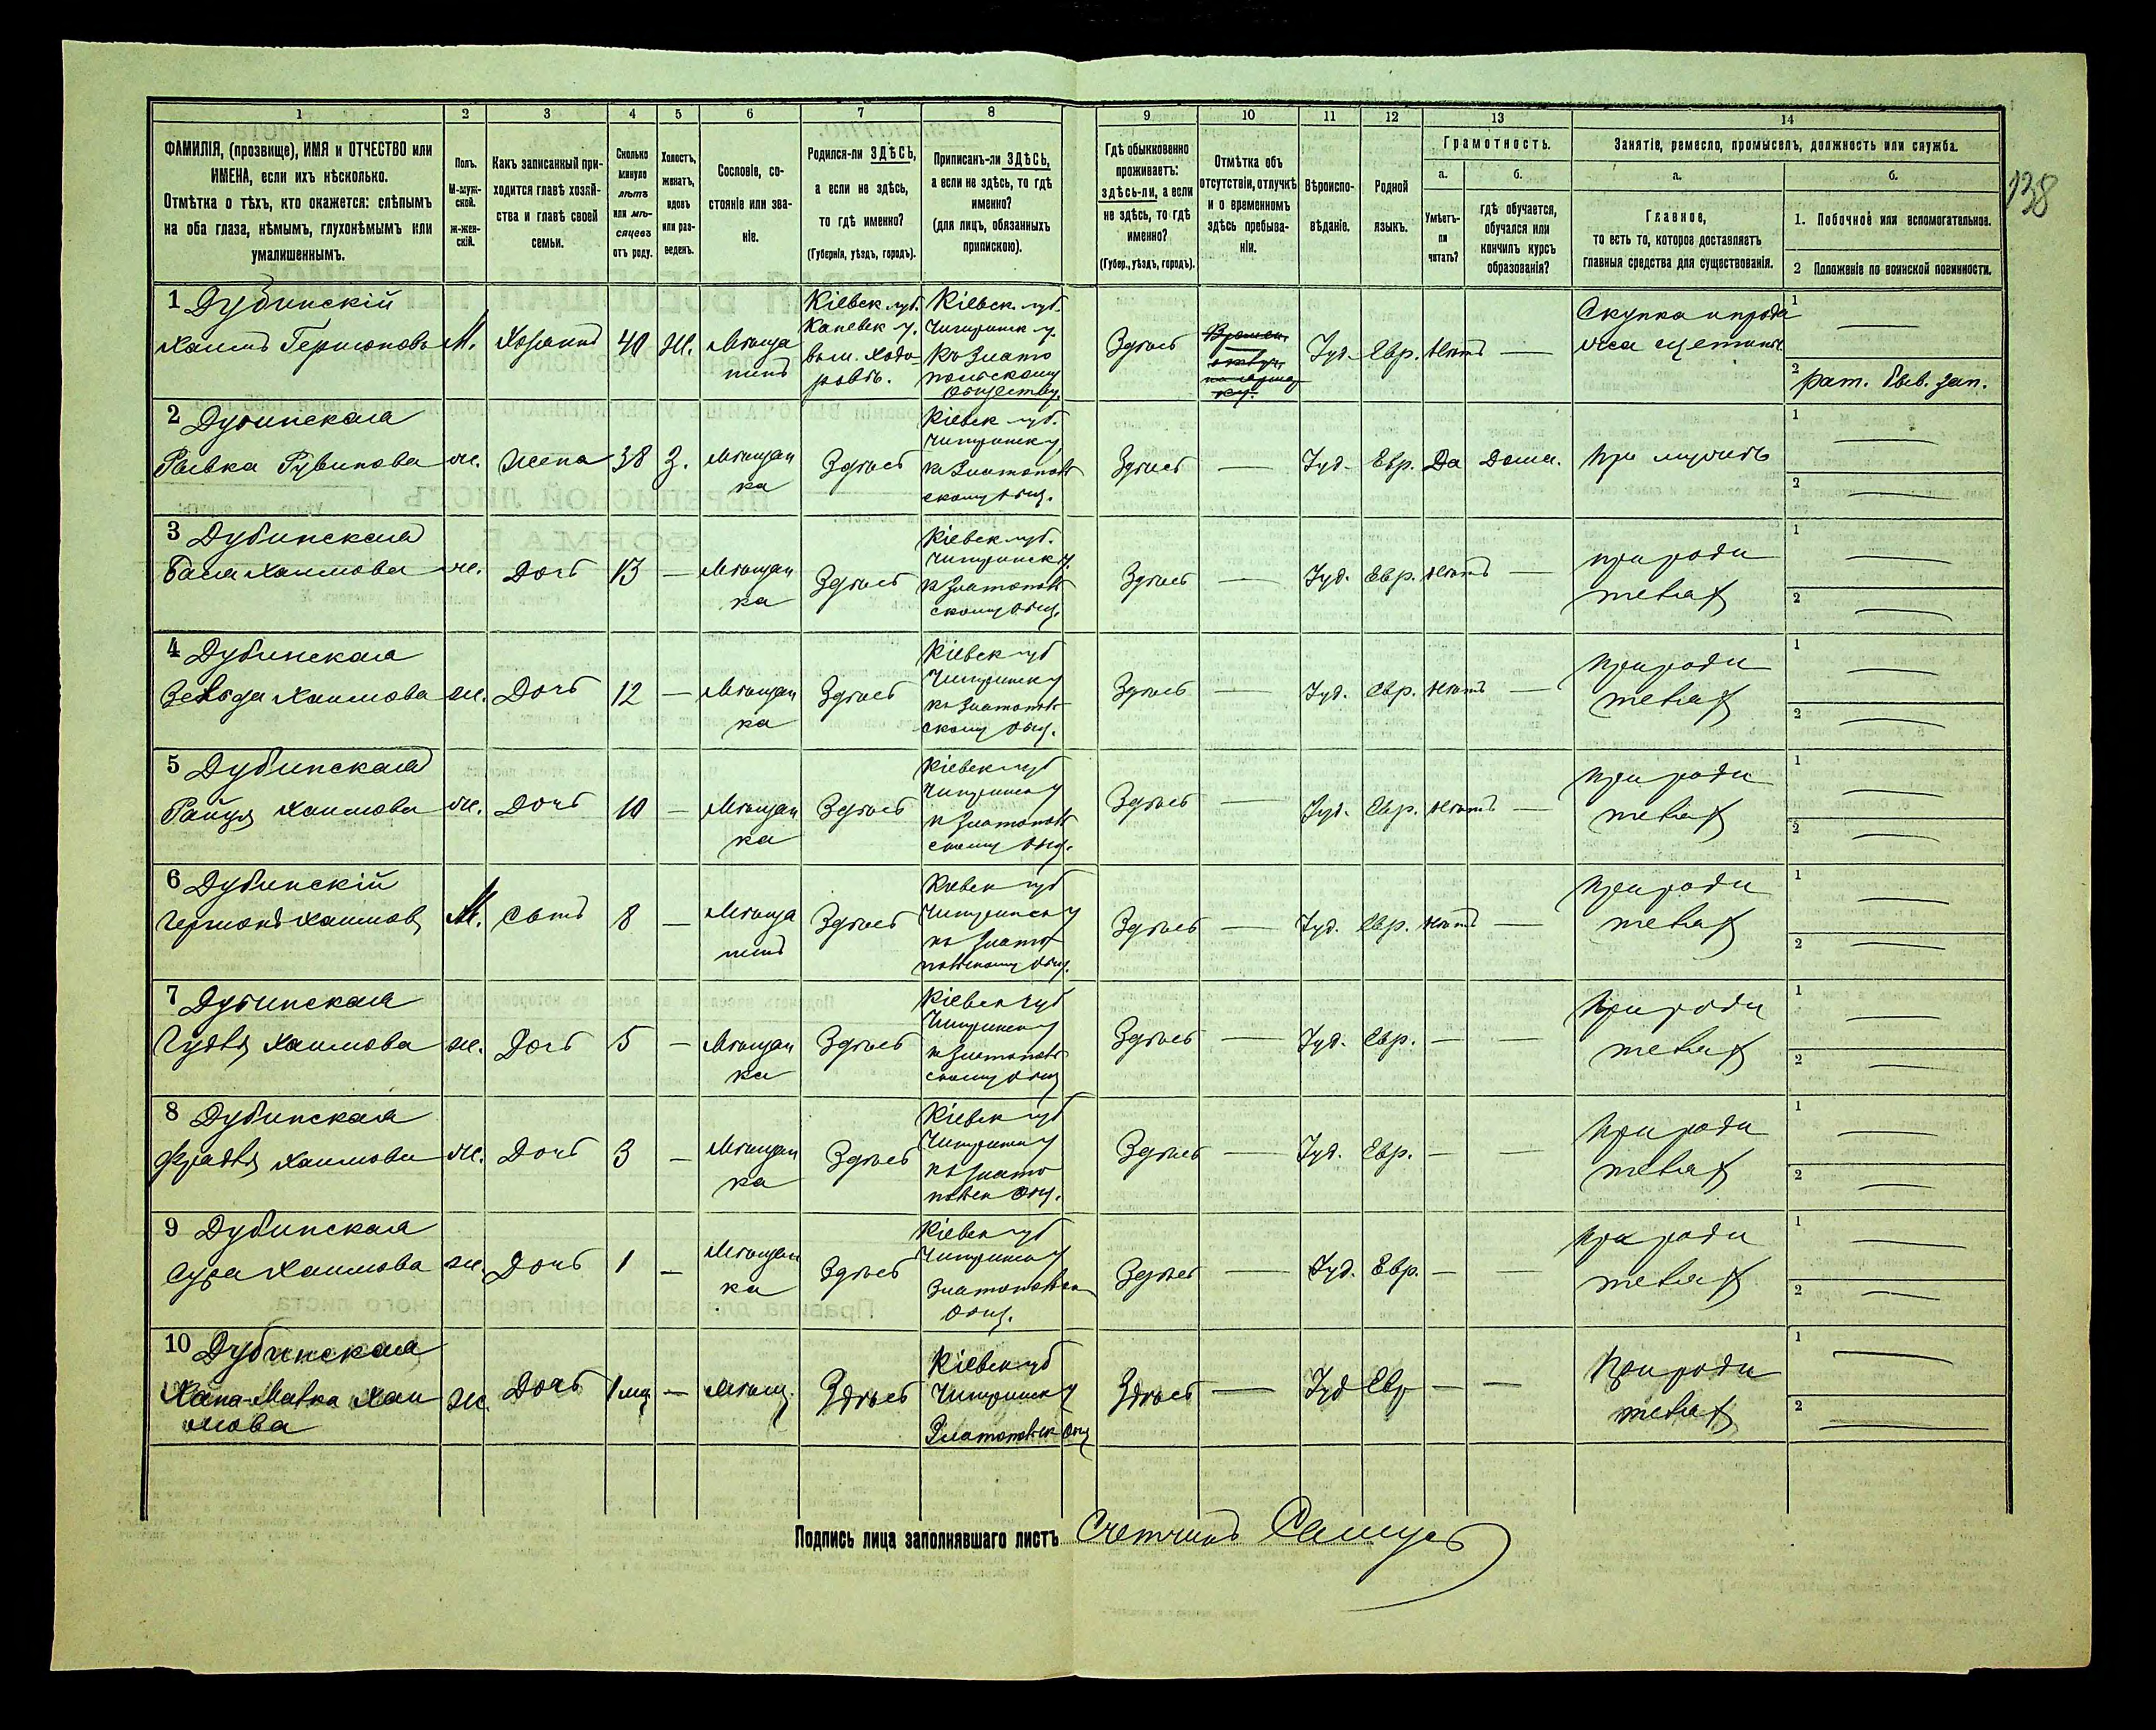 138
1 2 3 4 5 6 7 8 9 10 11 12 13 14
ФАМИЛІЯ, (прозвище), ИМЯ и ОТЧЕСТВО или
ИМЕНА, если ихъ нѣсколько.
Отмѣтка о тѣхъ, кто окажется: слѣпымъ
на оба глаза, нѣмымъ, глухонѣмымъ или
умалишеннымъ.
Полъ.
М-муж-
ской.
ж-жен-
скій.
Какъ записанный при-
ходится главѣ хозяй-
ства и главѣ своей
семьи.
Сколько
минуло
лѣтъ
или мѣ-
сяцевъ
отъ роду.
Холостъ,
женатъ,
вдовъ
или раз-
веденъ.
Сословіе, со-
стояніе или зва-
ніе.
Родился-ли ЗДѢСЬ,
а если не здѣсь,
то гдѣ именно?
(Губернія, уѣздъ, городъ).
Приписанъ-ли ЗДѢСЬ,
а если не здѣсь, то гдѣ
именно?
(для лицъ, обязанныхъ
припискою).
Гдѣ обыкновенно
проживаетъ:
здѣсь-ли, а если
не здѣсь, то гдѣ
именно?
(Губер., уѣздъ, городъ).
Отмѣтка объ
отсутствіи, отлучкѣ
и о временномъ
здѣсь пребыва-
ніи.
Вѣроиспо-
вѣданіе.
Родной
языкъ.
Грамотность.
а.
Умѣетъ-
ли
читать?
б.
гдѣ обучается,
обучался или
кончилъ курсъ
образованія?
Занятіе, ремесло, промыселъ, должность или служба.
а.
Главное,
то есть то, которое доставляетъ
главныя средства для существованія.
б.
1. Побочное или вспомогательное.
2 Положеніе по воинской повинности.
1 Дубинскій
Хаимъ Гершоновъ
М.
Хозяинъ
40
Ж.
Мѣща
нинъ
Кіевск. губ.
Каневск у.
вым. Ходо
ровъ.
Кіевск. губ.
Чигиринск у.
Къ Злато
польскому
обществу.
Здѣсь
Времен.
отлуч.
на ярмар
ку.
Іуд. Евр. Нѣтъ —
Скупка и прода
жа щетины
1 —
2 рат. быв. зап.
2 Дубинская
Рывка Рувинова
ж. Жена 38 З.
Мѣщан
ка
Здѣсь
Кіевск губ.
Чигиринск у
къ Златополь
скому общ.
Здѣсь — Іуд. Евр. Да Дома. При мужѣ
1 —
2 —
3 Дубинская
Бася Хаимова
ж. Дочь 13 —
Мѣщан
ка
Здѣсь
Кіевск губ.
Чигиринск у.
къ Златополь
скому общ.
Здѣсь — Іуд. Евр. Нѣтъ —
при роди
теляхъ
1 —
2 —
4 Дубинская
Хаимова
ж. Дочь 12 —
Мѣщан
ка
Здѣсь
Кіевск губ
Чигиринск у
къ Златополь
скому общ.
Здѣсь — Іуд. Евр. Нѣтъ —
при роди
теляхъ
1 —
2 —
5 Дубинская
Хаимова
ж. Дочь 10 —
Мѣщан
ка
Здѣсь
Кіевск губ
Чигиринск у
къ Златополь
скому общ.
Здѣсь — Іуд. Евр. Нѣтъ —
при роди
теляхъ
1 —
2 —
6 Дубинскій
Гершонъ Хаимовъ
М. Сынъ 8 —
Мѣща
нинъ
Здѣсь
Кіевск губ
Чигиринск у
къ Злато
польскому общ.
Здѣсь — Іуд. Евр. Нѣтъ —
при роди
теляхъ
1 —
2 —
7 Дубинская
Хаимова
ж. Дочь 5 —
Мѣщан
ка
Здѣсь
Кіевск губ
Чигиринск у
къ Златополь
скому общ
Здѣсь — Іуд. Евр. — —
при роди
теляхъ
1 —
2 —
8 Дубинская
Хаимова
ж. Дочь 3 —
Мѣщан
ка
Здѣсь
Кіевск губ
Чигиринск у
къ Злато
польск общ.
Здѣсь — Іуд. Евр. — —
при роди
теляхъ
1 —
2 —
9 Дубинская
Сура Хаимова
ж. Дочь 1 —
Мѣщан
ка
Здѣсь
Кіевск губ
Чигиринск у
Златопольск
общ.
Здѣсь — Іуд. Евр. — —
при роди
теляхъ
1 —
2 —
10 Дубинская
Хана-Малка Хаи
мова
ж. Дочь 1 мц — Мѣщ. Здѣсь
Кіевск губ
Чигиринск у
Златопольск общ
Здѣсь — Іуд Евр — —
При роди
теляхъ
1 —
2 —
Подпись лица заполнявшаго листъ Счетчикъ